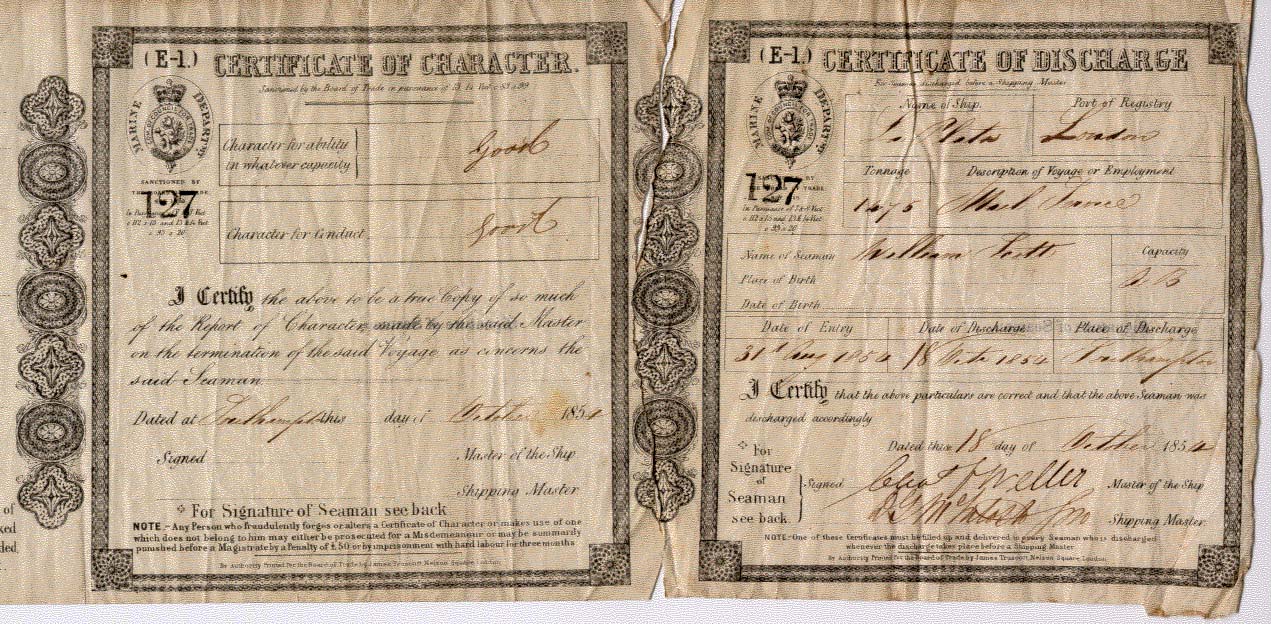 of
ked
ded.
(E-1.) CERTIFICATE OF CHARACTER.
Sanctioned by the Board of Trade in pursuance of 13 & 14 Vict c 93 s 99
MARINE DEPARTᵗ
SANCTIONED BY
THE BOARD OF TRADE
127
Character for ability
in whatever capacity
Good
Character for Conduct
Good
I Certify the above to be a true Copy of so much
of the Report of Character made by the said Master
on the termination of the said Voyage as concerns the
said Seaman
Dated at Southampton this day of October 1854
Signed Master of the Ship
Shipping Master
For Signature of Seaman see back
NOTE.- Any Person who fraudulently forges or alters a Certificate of Character or makes use of one
which does not belong to him may either be prosecuted for a Misdemeanour or may be summarily
punished before a Magistrate by a Penalty of £50 or by imprisonment with hard labour for three months
By Authority Printed for the Board of Trade by James Truscott, Nelson Square London
(E-1.) CERTIFICATE OF DISCHARGE
For Seamen discharged before a Shipping Master
MARINE DEPARTᵗ
127
Name of Ship. Port of Registry
La Plata London
Tonnage Description of Voyage or Employment
1475 Mail Service
Name of Seaman William Capacity
Place of Birth A B
Date of Birth
Date of Entry Date of Discharge Place of Discharge
31st Aug 1854 18 Octr 1854 Southampton
I Certify that the above particulars are correct and that the above Seaman was
discharged accordingly
Dated this 18 day of October 1854
For
Signature
of
Seaman
see back
Signed Weller Master of the Ship
Shipping Master
NOTE- One of these Certificates must be filled up and delivered to every Seaman who is discharged
whenever the discharge takes place before a Shipping Master
By Authority Printed for the Board of Trade by James Truscott, Nelson Square London